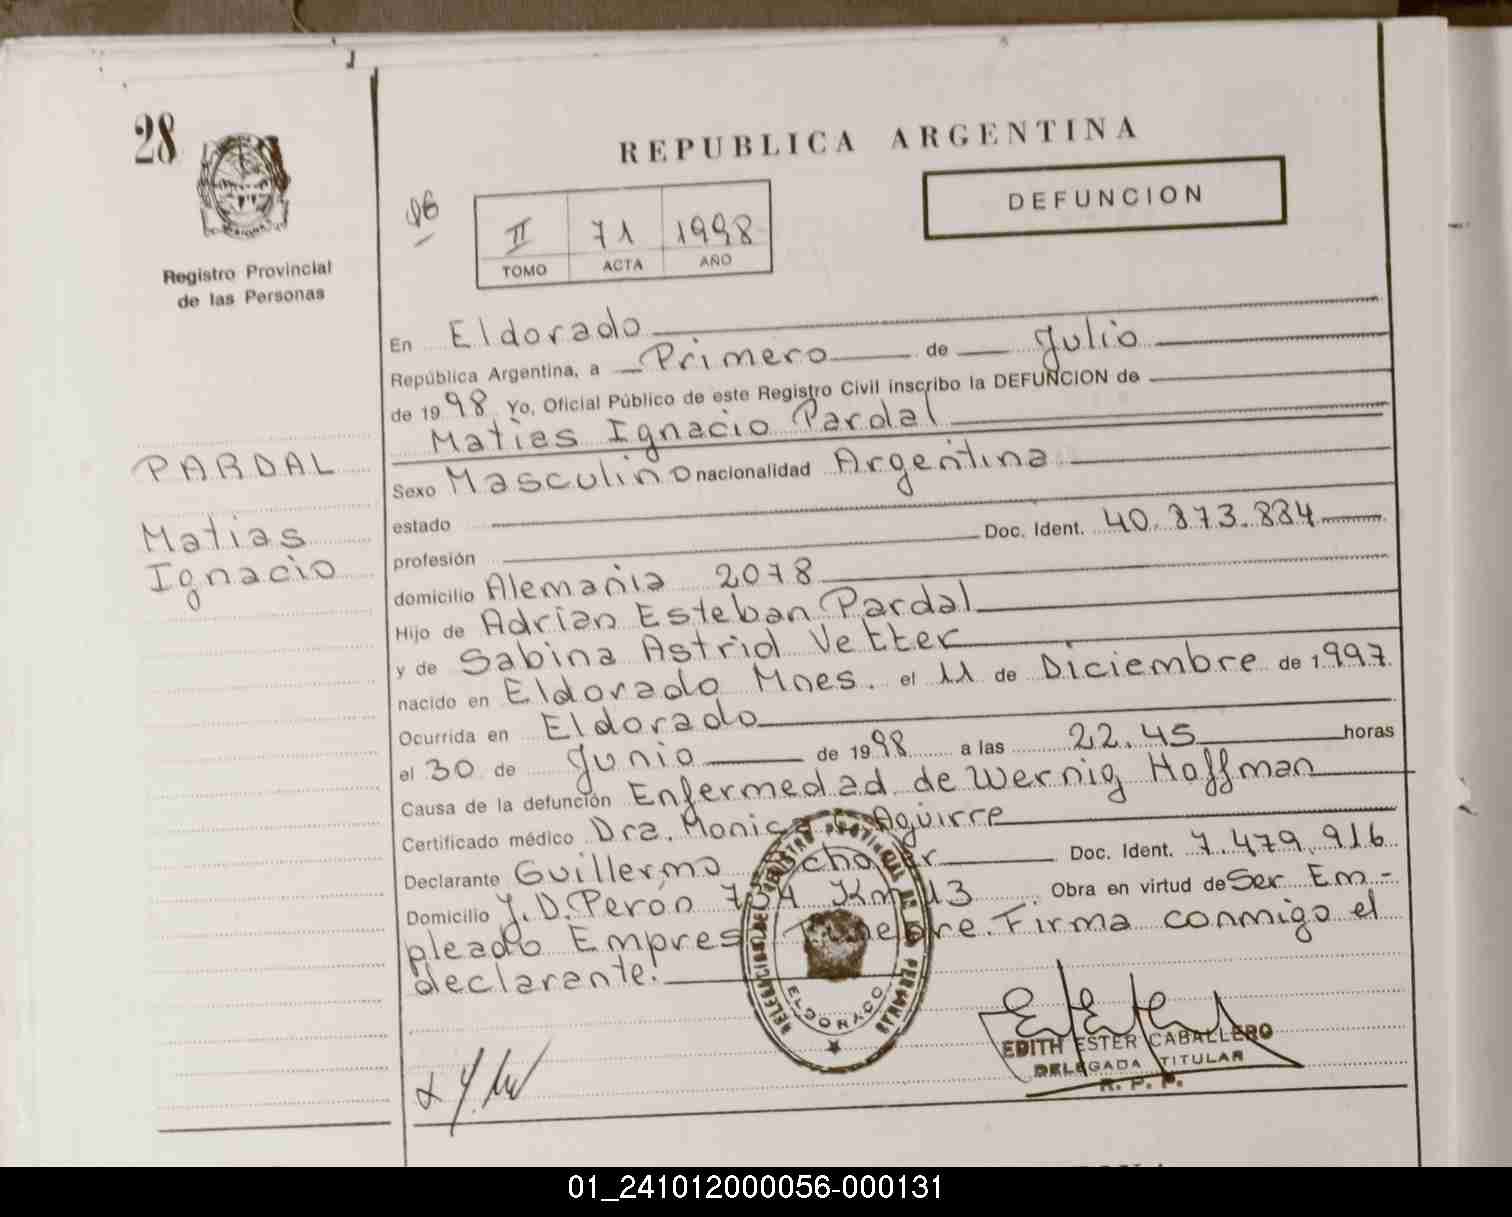 28
REPUBLICA ARGENTINA
DEFUNCION
II 71 1998
TOMO ACTA AÑO
Registro Provincial
de las Personas
PARDAL
Matias
Ignacio
En Eldorado
República Argentina, a Primero de Julio
de 1998 Yo, Oficial Público de este Registro Civil inscribo la DEFUNCION de
Matias Ignacio Pardal
Sexo Masculino nacionalidad Argentina
estado
profesión Doc. Ident. 40.873.884
domicilio Alemania 2078
Hijo de Adrian Esteban Pardal
y de Sabina Astrid Vetter
nacido en Eldorado Mnes. el 11 de Diciembre de 1997
Ocurrida en Eldorado
el 30 de Junio de 1998 a las 22.45 horas
Causa de la defunción Enfermedad de Wernig Hoffman
Certificado médico Dra. Monica Aguirre
Declarante Guillermo Doc. Ident. 7.479.916
Domicilio J.D. Perón 734 Km 13 Obra en virtud de Ser Em-
pleado Empresa Funebre. Firma conmigo el
declarante.
DELEGACION DE REGISTRO PROVINCIAL DE LAS PERSONAS
ELDORADO
EDITH ESTER CABALLERO
DELEGADA TITULAR
R. P. P.
01_241012000056-000131